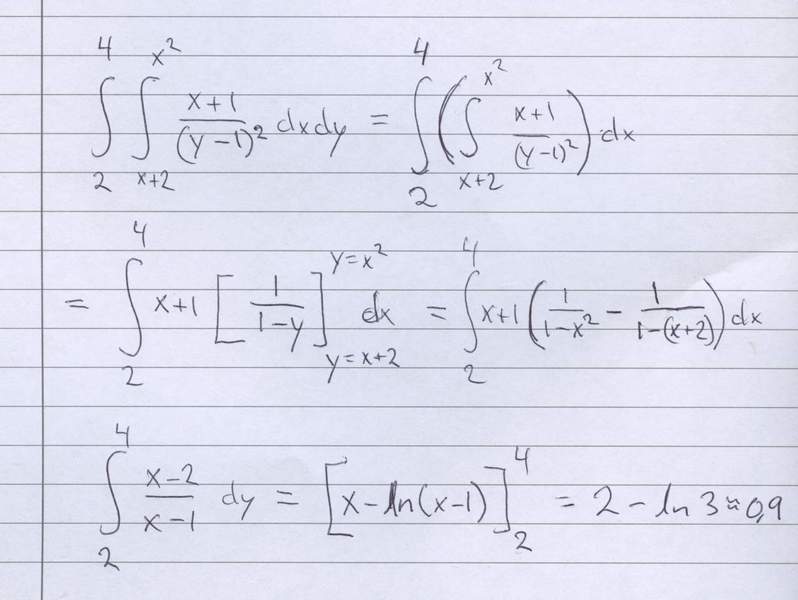 ∫₂⁴ ∫ₓ₊₂^(x²) (x+1)/(y−1)² dxdy = ∫₂⁴ ( ∫ₓ₊₂^(x²) (x+1)/(y−1)² ) dx
= ∫₂⁴ x+1 [ 1/(1−y) ]_(y=x+2)^(y=x²) dx = ∫₂⁴ x+1 ( 1/(1−x²) − 1/(1−(x+2)) ) dx
∫₂⁴ (x−2)/(x−1) dy = [ x−ln(x−1) ]₂⁴ = 2 − ln 3 ≈ 0,9